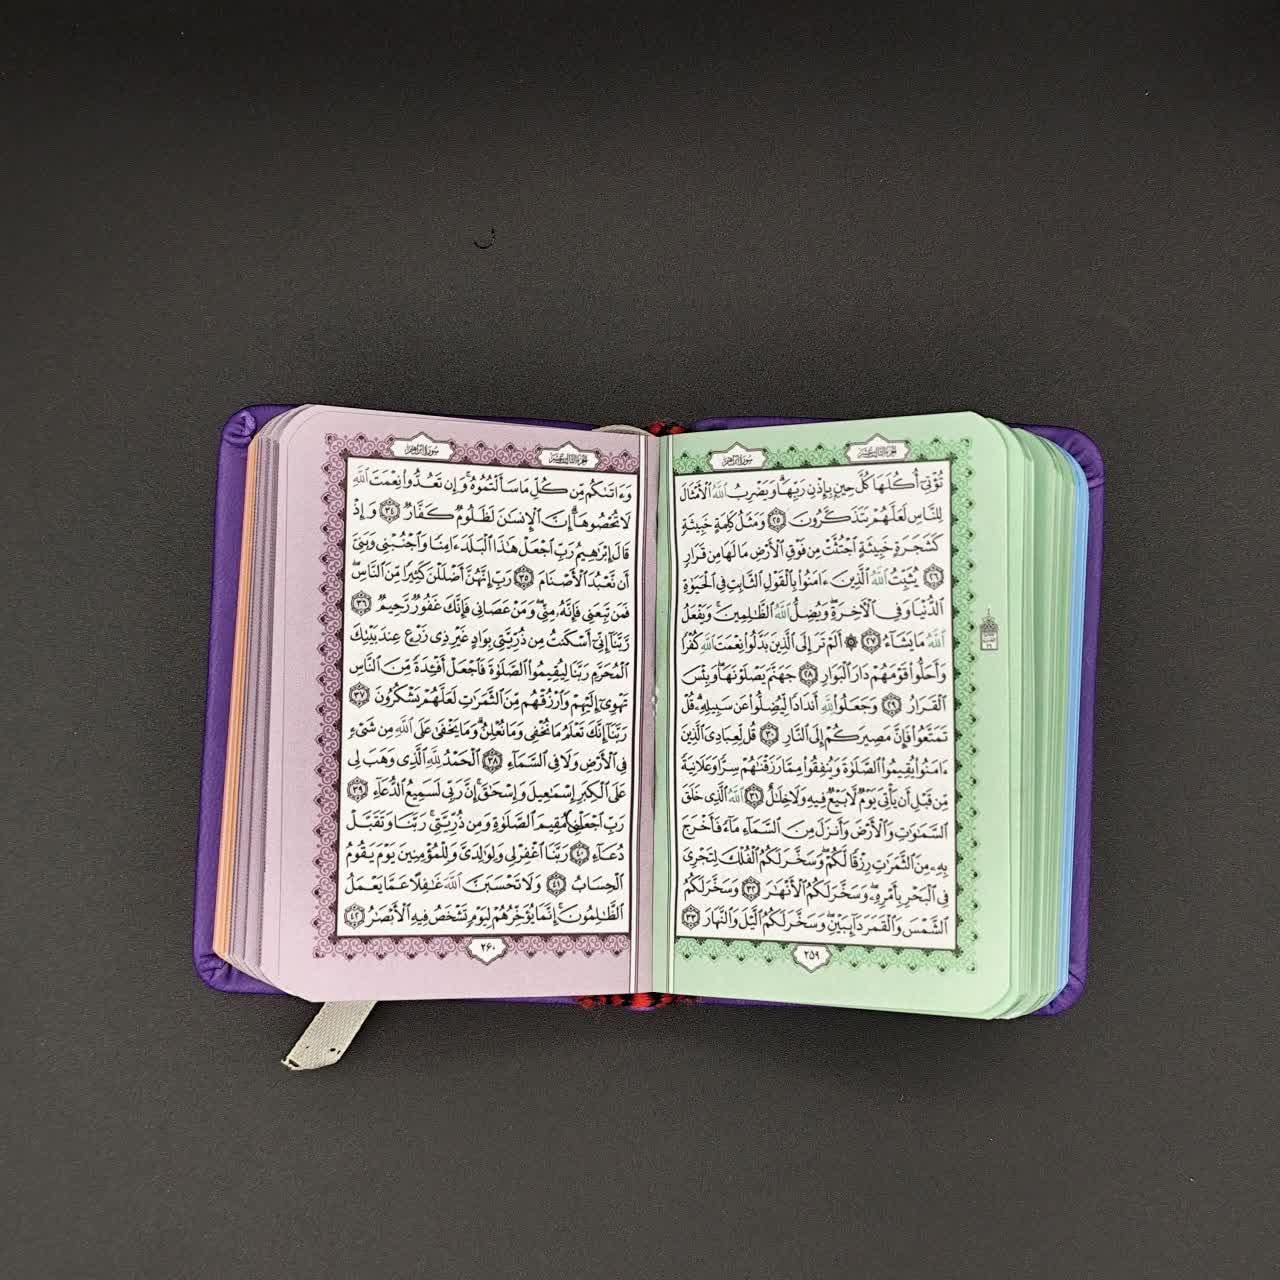 الجزء الثالث عشر
سورة إبراهيم
تُؤْتِىٓ أُكُلَهَا كُلَّ حِينٍۭ بِإِذْنِ رَبِّهَا ۗ وَيَضْرِبُ ٱللَّهُ ٱلْأَمْثَالَ
لِلنَّاسِ لَعَلَّهُمْ يَتَذَكَّرُونَ ٢٥ وَمَثَلُ كَلِمَةٍ خَبِيثَةٍ
كَشَجَرَةٍ خَبِيثَةٍ ٱجْتُثَّتْ مِن فَوْقِ ٱلْأَرْضِ مَا لَهَا مِن قَرَارٍ
٢٦ يُثَبِّتُ ٱللَّهُ ٱلَّذِينَ ءَامَنُوا۟ بِٱلْقَوْلِ ٱلثَّابِتِ فِى ٱلْحَيَوٰةِ
ٱلدُّنْيَا وَفِى ٱلْءَاخِرَةِ ۖ وَيُضِلُّ ٱللَّهُ ٱلظَّـٰلِمِينَ ۚ وَيَفْعَلُ
ٱللَّهُ مَا يَشَآءُ ٢٧ ۞ أَلَمْ تَرَ إِلَى ٱلَّذِينَ بَدَّلُوا۟ نِعْمَتَ ٱللَّهِ كُفْرًا
وَأَحَلُّوا۟ قَوْمَهُمْ دَارَ ٱلْبَوَارِ ٢٨ جَهَنَّمَ يَصْلَوْنَهَا ۖ وَبِئْسَ
ٱلْقَرَارُ ٢٩ وَجَعَلُوا۟ لِلَّهِ أَندَادًا لِّيُضِلُّوا۟ عَن سَبِيلِهِۦ ۗ قُلْ
تَمَتَّعُوا۟ فَإِنَّ مَصِيرَكُمْ إِلَى ٱلنَّارِ ٣٠ قُل لِّعِبَادِىَ ٱلَّذِينَ
ءَامَنُوا۟ يُقِيمُوا۟ ٱلصَّلَوٰةَ وَيُنفِقُوا۟ مِمَّا رَزَقْنَـٰهُمْ سِرًّا وَعَلَانِيَةً
مِّن قَبْلِ أَن يَأْتِىَ يَوْمٌ لَّا بَيْعٌ فِيهِ وَلَا خِلَـٰلٌ ٣١ ٱللَّهُ ٱلَّذِى خَلَقَ
ٱلسَّمَـٰوَٰتِ وَٱلْأَرْضَ وَأَنزَلَ مِنَ ٱلسَّمَآءِ مَآءً فَأَخْرَجَ
بِهِۦ مِنَ ٱلثَّمَرَٰتِ رِزْقًا لَّكُمْ ۖ وَسَخَّرَ لَكُمُ ٱلْفُلْكَ لِتَجْرِىَ
فِى ٱلْبَحْرِ بِأَمْرِهِۦ ۖ وَسَخَّرَ لَكُمُ ٱلْأَنْهَـٰرَ ٣٢ وَسَخَّرَ لَكُمُ
ٱلشَّمْسَ وَٱلْقَمَرَ دَآئِبَيْنِ ۖ وَسَخَّرَ لَكُمُ ٱلَّيْلَ وَٱلنَّهَارَ ٣٣
٢٥٩
الجزء الثالث عشر
سورة إبراهيم
وَءَاتَىٰكُم مِّن كُلِّ مَا سَأَلْتُمُوهُ ۚ وَإِن تَعُدُّوا۟ نِعْمَتَ ٱللَّهِ
لَا تُحْصُوهَآ ۗ إِنَّ ٱلْإِنسَـٰنَ لَظَلُومٌ كَفَّارٌ ٣٤ وَإِذْ
قَالَ إِبْرَٰهِيمُ رَبِّ ٱجْعَلْ هَـٰذَا ٱلْبَلَدَ ءَامِنًا وَٱجْنُبْنِى وَبَنِىَّ
أَن نَّعْبُدَ ٱلْأَصْنَامَ ٣٥ رَبِّ إِنَّهُنَّ أَضْلَلْنَ كَثِيرًا مِّنَ ٱلنَّاسِ ۖ
فَمَن تَبِعَنِى فَإِنَّهُۥ مِنِّى ۖ وَمَنْ عَصَانِى فَإِنَّكَ غَفُورٌ رَّحِيمٌ ٣٦
رَّبَّنَآ إِنِّىٓ أَسْكَنتُ مِن ذُرِّيَّتِى بِوَادٍ غَيْرِ ذِى زَرْعٍ عِندَ بَيْتِكَ
ٱلْمُحَرَّمِ رَبَّنَا لِيُقِيمُوا۟ ٱلصَّلَوٰةَ فَٱجْعَلْ أَفْـِٔدَةً مِّنَ ٱلنَّاسِ
تَهْوِىٓ إِلَيْهِمْ وَٱرْزُقْهُم مِّنَ ٱلثَّمَرَٰتِ لَعَلَّهُمْ يَشْكُرُونَ ٣٧
رَبَّنَآ إِنَّكَ تَعْلَمُ مَا نُخْفِى وَمَا نُعْلِنُ ۗ وَمَا يَخْفَىٰ عَلَى ٱللَّهِ مِن شَىْءٍ
فِى ٱلْأَرْضِ وَلَا فِى ٱلسَّمَآءِ ٣٨ ٱلْحَمْدُ لِلَّهِ ٱلَّذِى وَهَبَ لِى
عَلَى ٱلْكِبَرِ إِسْمَـٰعِيلَ وَإِسْحَـٰقَ ۚ إِنَّ رَبِّى لَسَمِيعُ ٱلدُّعَآءِ ٣٩
رَبِّ ٱجْعَلْنِى مُقِيمَ ٱلصَّلَوٰةِ وَمِن ذُرِّيَّتِى ۚ رَبَّنَا وَتَقَبَّلْ
دُعَآءِ ٤٠ رَبَّنَا ٱغْفِرْ لِى وَلِوَٰلِدَىَّ وَلِلْمُؤْمِنِينَ يَوْمَ يَقُومُ
ٱلْحِسَابُ ٤١ وَلَا تَحْسَبَنَّ ٱللَّهَ غَـٰفِلًا عَمَّا يَعْمَلُ
ٱلظَّـٰلِمُونَ ۚ إِنَّمَا يُؤَخِّرُهُمْ لِيَوْمٍ تَشْخَصُ فِيهِ ٱلْأَبْصَـٰرُ ٤٢
٢٦٠